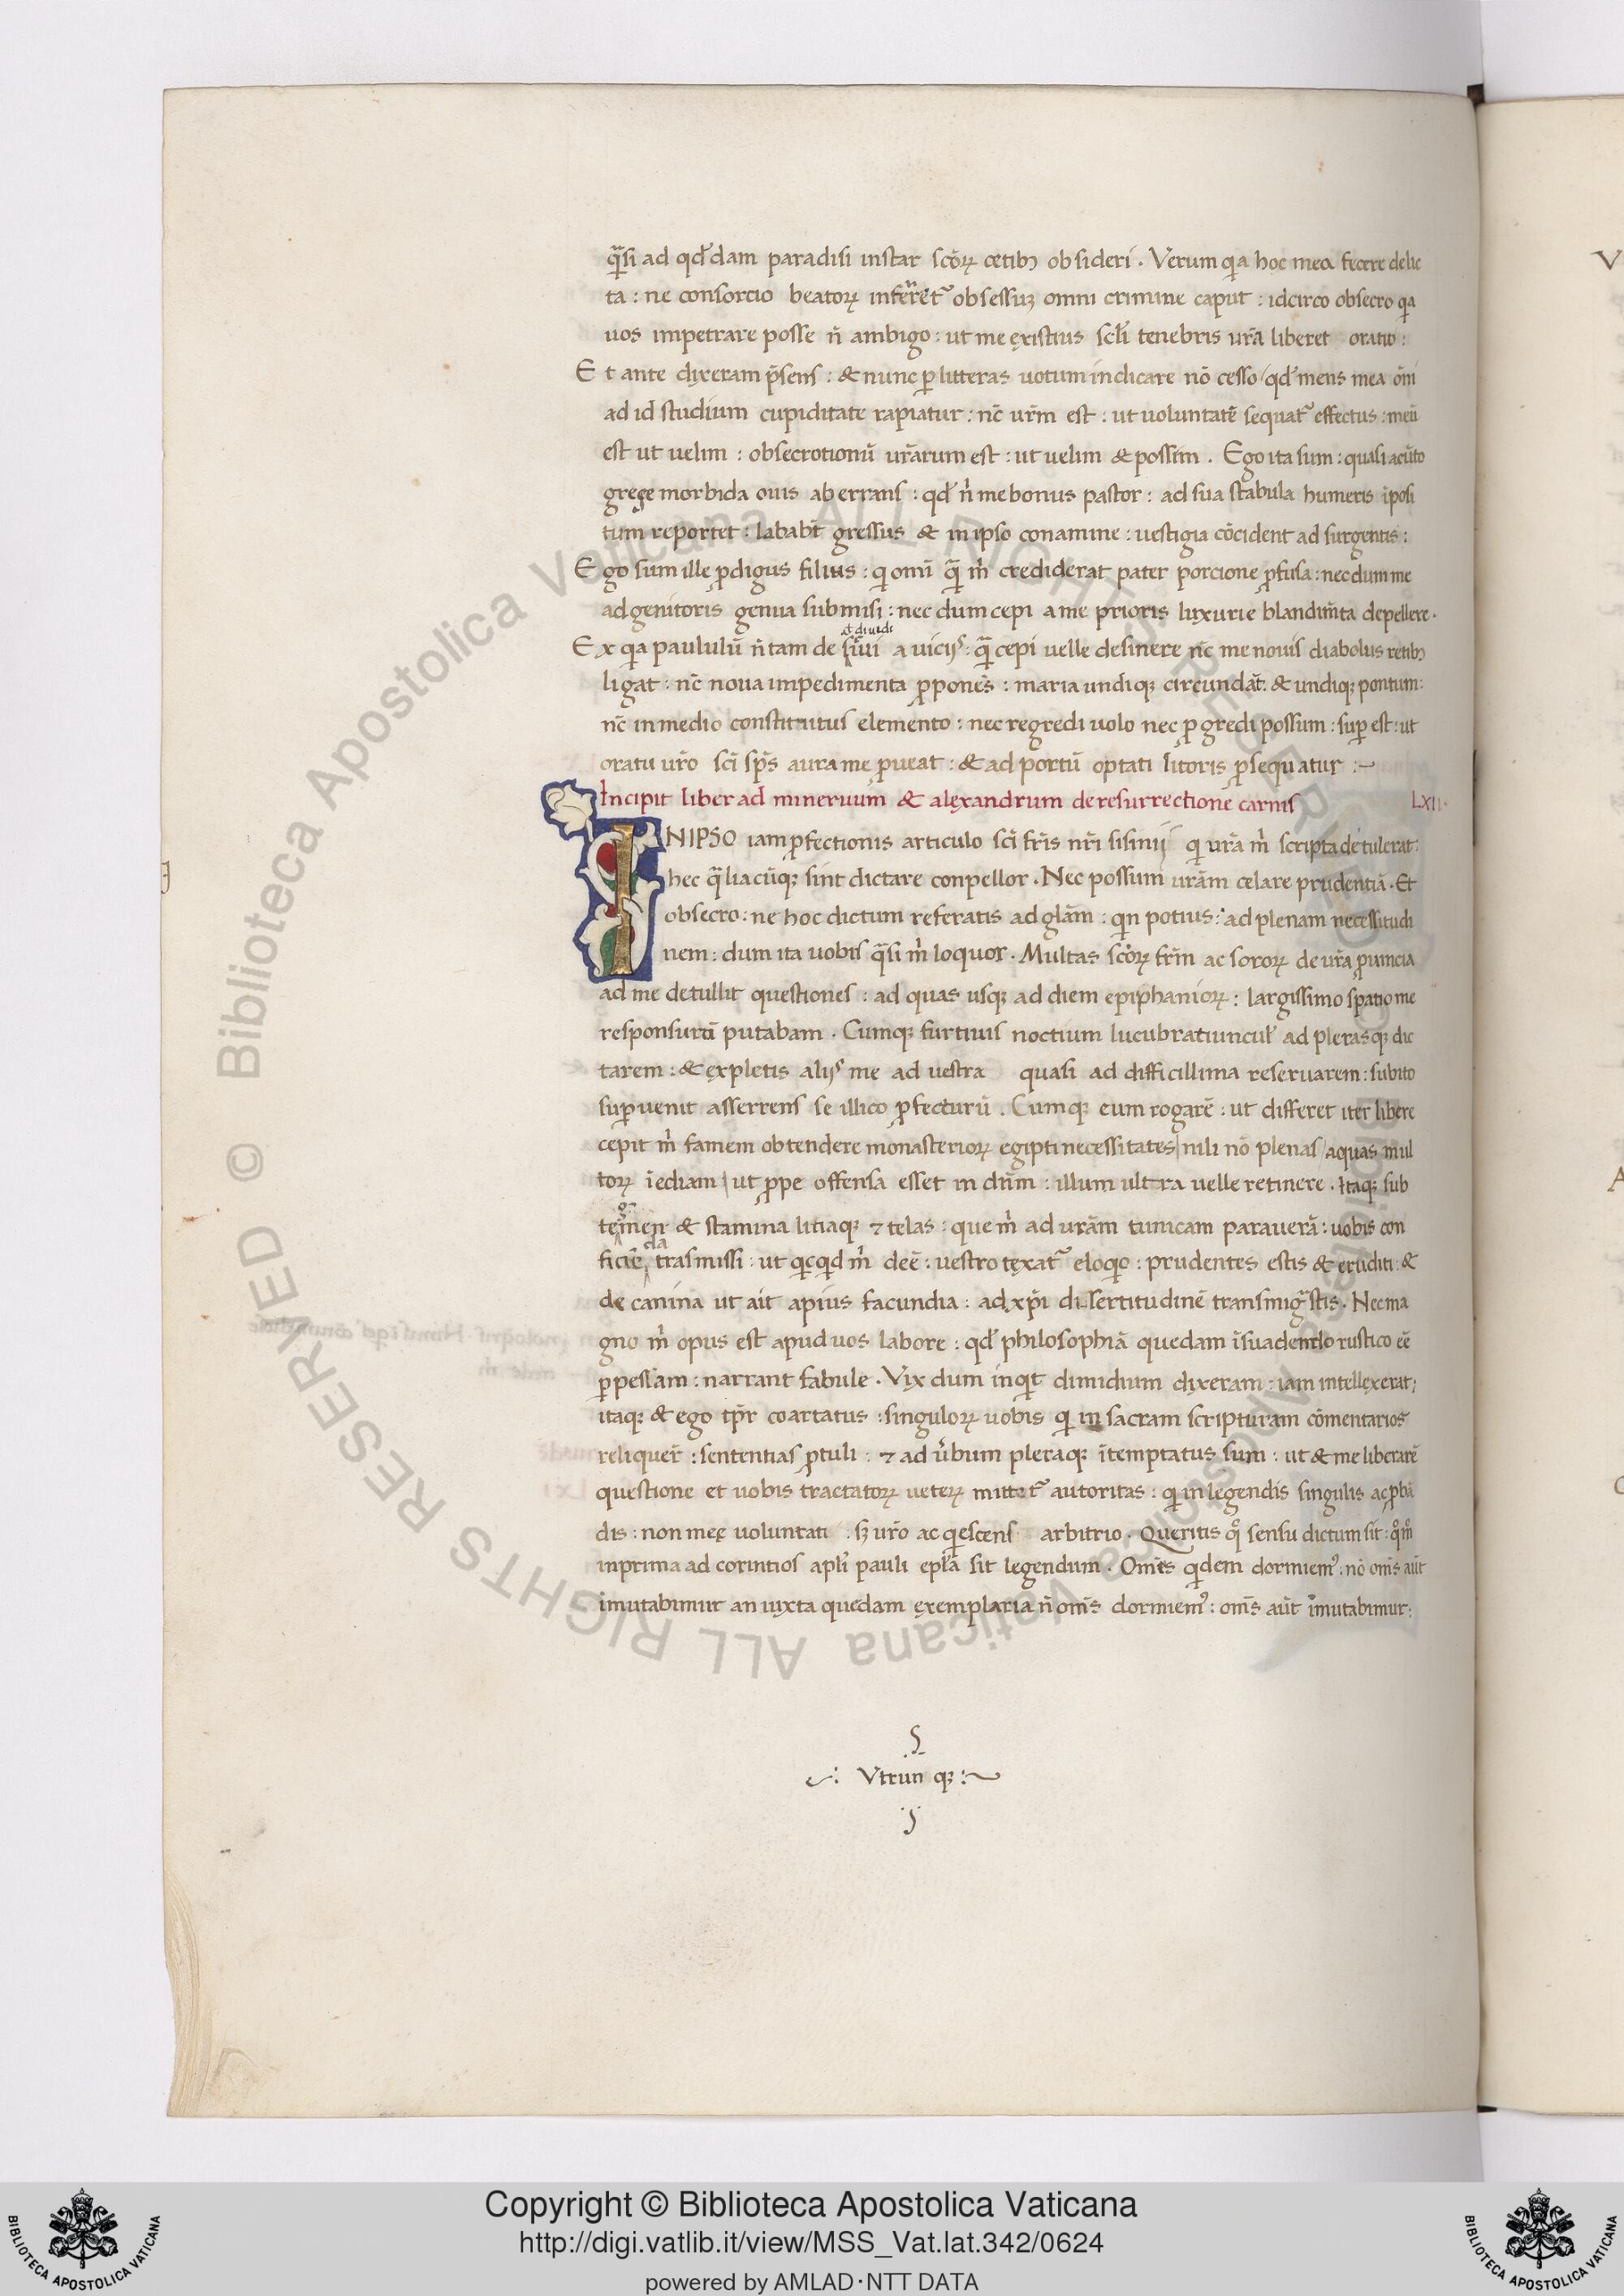 q̄si ad qd̕dam paradisi instar sc̄oꝝ cetibꝫ obsideri. Verum qa hoc mea fecere delic
ta : ne consorcio beatoꝝ infẽret᷑ obsessuꝫ omni crimine caput : idcirco obsecro qa
uos impetrare posse n̄ ambigo : ut me existius scl̄i tenebris ur̄a liberet oratio :
Et ante dixeram p̄sens : & nunc ꝑ litteras uotum indicare nō cesso / qd̕ mens mea ōni
ad id studium cupiditate rapiatur : nc̄ ur̄m est : ut uoluntatē sequat᷑ effectus : meū
est ut uelim : obsecrotionū ur̄arum est : ut uelim & possim . Ego ita sum : quasi a cūto
grege morbida ouis ab errans : qd̕ n̄ me bonus pastor : ad sua stabula humeris īposi
tum reportet : lababt̄ gressus & in ipso conamine : uestigia cōcident ad surgentis :
Ego sum ille ꝓdigus filius : qi omī q̄ m̄ crediderat pater porcione ꝓfusa : nec dum me
ad genitoris genua submisi : nec dum cepi a me prioris luxurie blandim̄ta depellere .
Ex qa paululū n̄ tam desiui a uicijs : q̄ cepi uelle desinere nc̄ me nouis diabolus retibꝫ
ligat : nc̄ noua impedimenta ꝓponēs : maria undiqꝫ circundāt . & undiqꝫ pontum :
nc̄ in medio constitutus elemento : nec regredi uolo nec ꝓgredi possum : suꝑ est : ut
oratu ur̄o sc̄i sp̄s aura me ꝓueat : & ad portū optati litoris ꝓsequatur :~
Incipit liber ad mineruum & alexandrum de resurrectione carnis LXII.
IN IPSO iam ꝓfectionis articulo sc̄i fr̄is nr̄i sisinij qi ur̄a m̄ scripta detulerat :
hec q̄liacūqꝫ sint dictare conpellor . Nec possum ur̄am celare prudentiā . Et
obsecro : ne hoc dictum referatis ad gl̄am : qin potius : ad plenam necessitudi
nem : dum ita uobis q̄si m̄ loquor . Multas sc̄oꝝ fr̄m ac sororꝝ de ur̄a ꝓuincia
ad me detullit questiones : ad quas usqꝫ ad diem epiphanioꝝ : largissimo spatio me
responsurū putabam . Cumqꝫ furtiuis noctium lucubratiuncul̕ ad plerasqꝫ dic
tarem : & expletis alijs me ad uestra quasi ad difficillima reseruarem : subito
suꝑuenit asserens se illico ꝓfecturū . Cumqꝫ eum rogarē : ut differet iter libere
cepit m̄ famem obtendere monasterioꝝ egipti necessitates / nili nō plenas / aquas mul
toꝝ īediam / ut ꝓpe offensa esset in dn̄m : illum ultra uelle retinere . Itaqꝫ sub
temen & stamina litiaqꝫ ⁊ telas : que m̄ ad ur̄am tunicam parauerā : uobis con
ficiē\da/ trasmissi : ut qicqid m̄ deē : uestro texat᷑ eloqio : prudentes estis & eruditi : &
de canina ut ait apius facundia : ad xp̄i disertitudinē transmigrastis . Nec ma
gno m̄ opus est apud uos labore : qd̕ philosophiā quedam īsuadendo rustico eē
ꝑpesiam : narrant fabule . Vix dum inqit dimidium dixeram : iam intellexerat ;
itaqꝫ & ego tp̄r coartatus : singuloꝝ uobis qi in sacram scripturam cōmentarios
reliquer̄ : sententias ꝓtuli : ⁊ ad ūbum pleraqꝫ ītemptatus sum : ut & me liberarē
questione et uobis tractatoꝝ ueteꝝ mittet᷑ autoritas : qi in legendis singulis ac ꝓbā
dis : non meę uoluntati sꝫ ur̄o ac qiescens arbitrio . Queritis qo sensu dictum sit : qom̄
in prima ad corintios apl̄i pauli epl̄a sit legendum . Omēs qidem dormiem᷒ : nō omīs aūt
imutabimur an iuxta quedam exemplaria n̄ oms̄ dormiem᷒ : oms̄ aūt īmutabimur :
Vtrun qꝫ :~